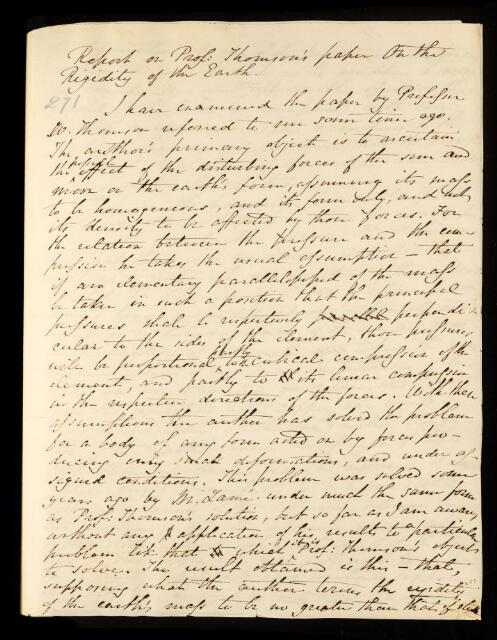 Report on Prof: Thomson's paper On the
Rigidity of the Earth.
271
I have examined the paper by Professor
W. Thomson referred to me some time ago.
The author's primary object is to ascertain
the effect of the disturbing forces of the sun and
moon on the earth's form, assuming its mass
to be homogeneous, and its form only, and not
its density to be affected by those forces. For
the relation between the pressure and the com-
pression he takes the usual assumption – that
if an elementary parallelopiped of the mass
be taken in such a position that the principal
pressures shall be respectively parallel perpendi-
cular to the sides of the element, those pressures
will be proportional partly to the cubical compression of the
element, and partly to its linear compression
in the respective directions of the forces. With these
assumptions the author has solved the problem
for a body of any form acted on by forces pro-
ducing only small deformations, and under as-
signed conditions. This problem was solved some
years ago by M. Lamé under much the same form
as Prof: Thomson's solution, but so far as I am aware,
without any application of his results to a particular
problem like that which it is Prof: Thomson's object
to solve. The result obtained is this – that,
supposing what the author terms the rigidity
of the earth's mass to be no greater than that of steel